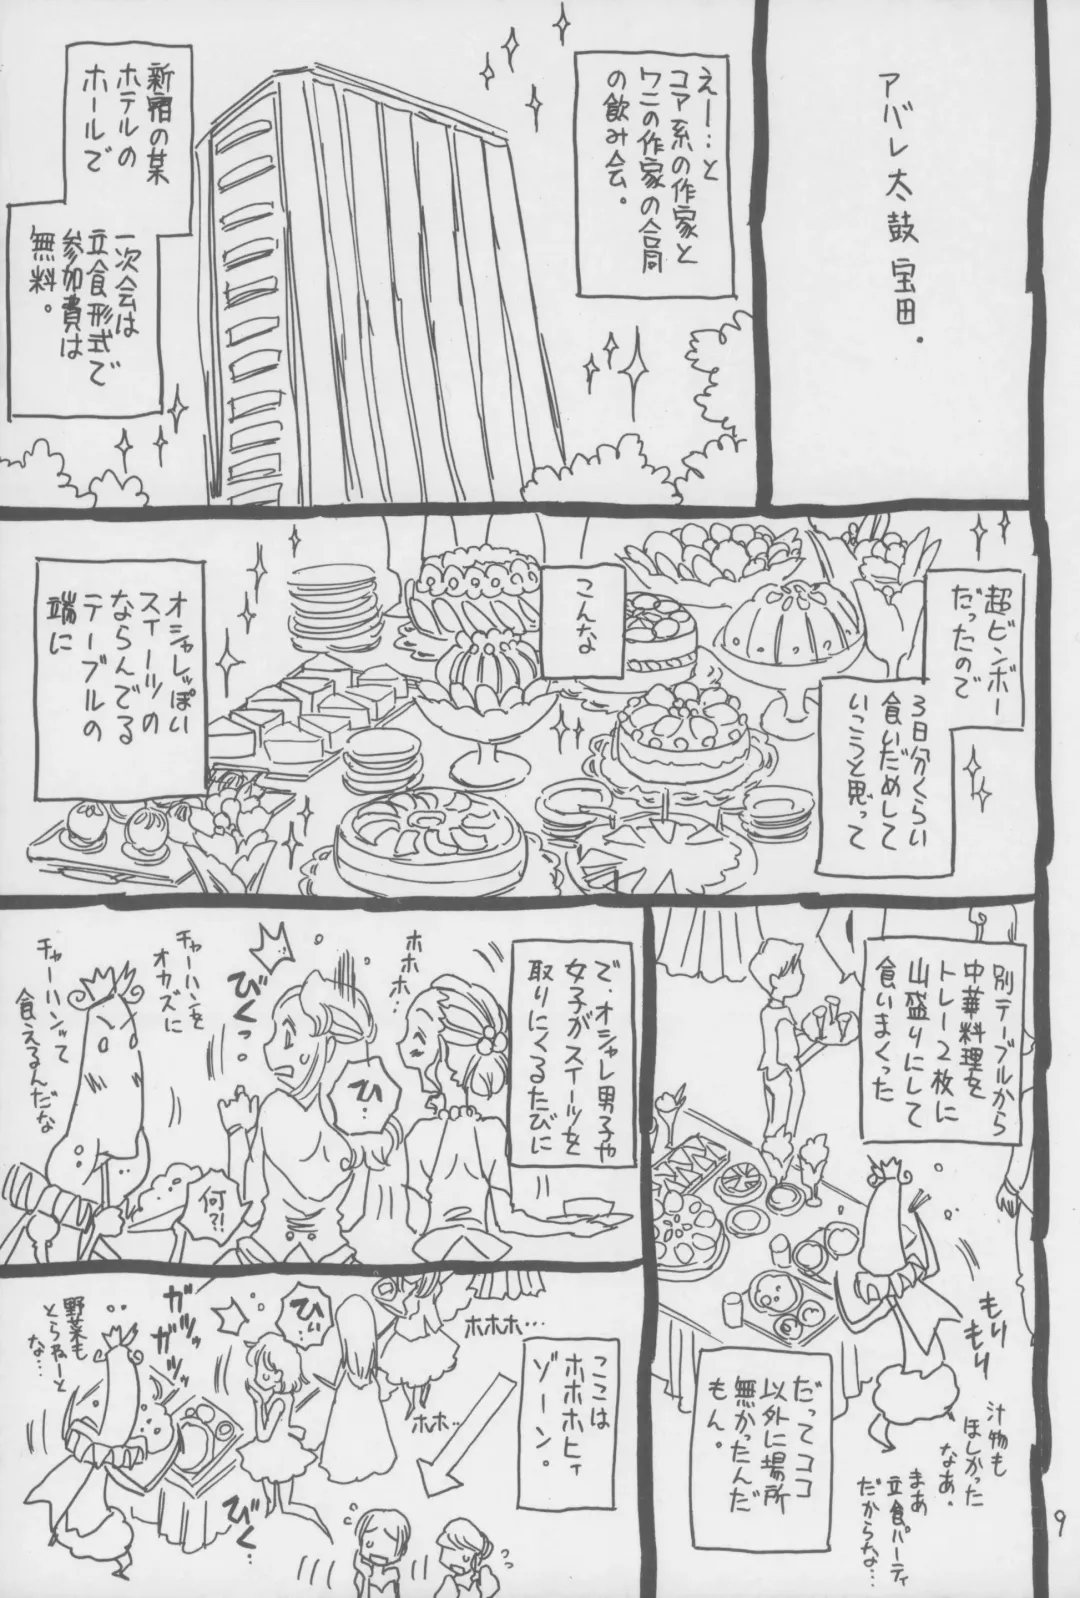 アバレ太鼓宝田．
えー…と
コア系の作家と
ワニの作家の合同
の飲み会。
新宿の某
ホテルの
ホールで
一次会は
立食形式で
参加費は
無料。
超ビンボー
だったので
3日分くらい
食いだめして
いこうと思って
こんな
オシャレっぽい
スイーツの
ならんでる
テーブルの
端に
別テーブルから
中華料理を
トレー2枚に
山盛りにして
食いまくった
もり
もり
汁物も
ほしかった
なあ．
まあ
立食パーティ
だからな…
だってココ
以外に場所
無かったんだ
もん。
で‥オシャレ男子や
女子がスイーツを
取りにくるたびに
ホホホ…
ひ…
びくっ
何?!
チャーハンを
オカズに
チャーハンって
食えるんだな
ここは
ホホホヒィ
ゾーン。
ホホホ…
ホホ…
ひぃ…
びく
ガツッ
ガツッ
野菜も
とらねーと
な…
9